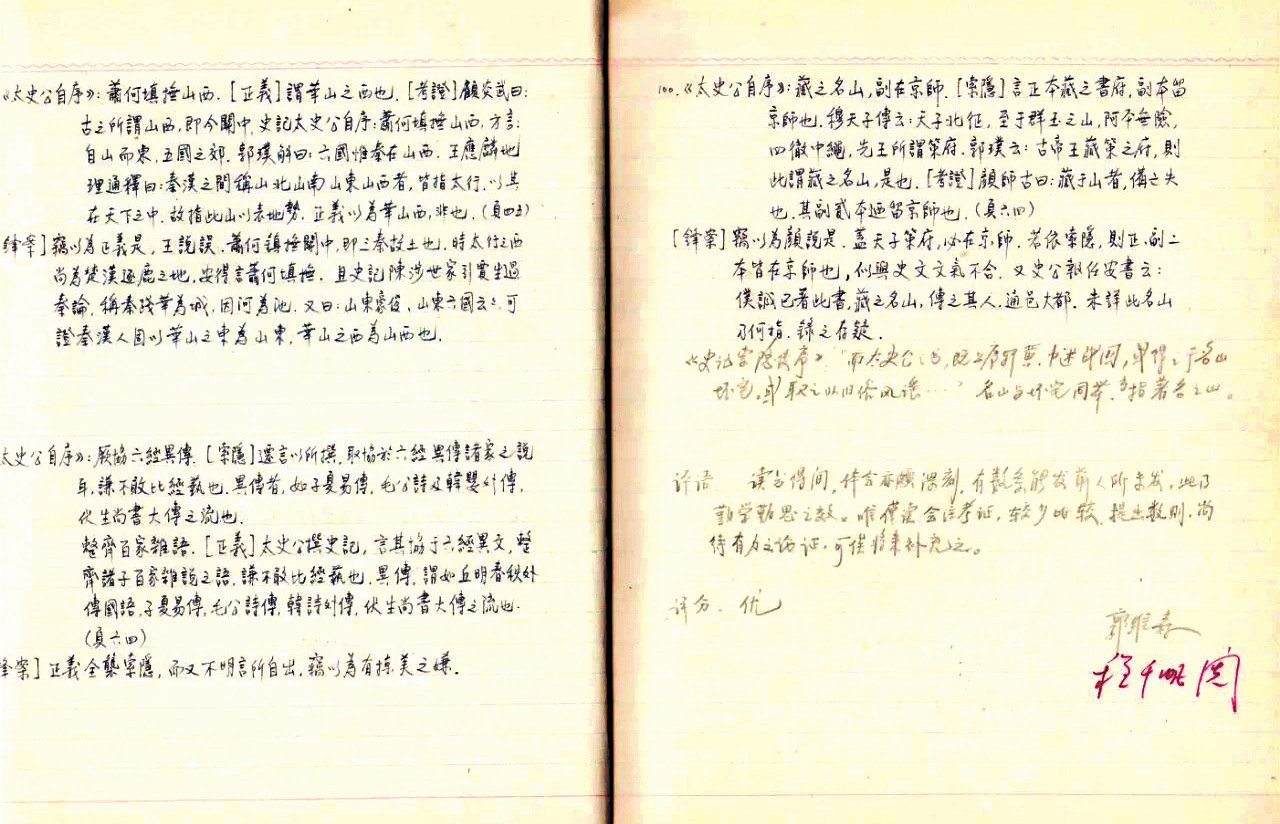 《太史公自序》：蕭何填撫山西．[正義]謂華山之西也．[考證]顧炎武曰：
古之所謂山西，即今關中．史記太史公自序：蕭何填撫山西．方言：
自山而東，五國之郊．郭璞解曰：六國惟秦在山西．王應麟地
理通釋曰：秦漢之間稱山北山南山東山西者，皆指太行．以其
在天下之中．故指此山以表地勢．正義以為華山西，非也．(頁四五)
鋒案]竊以為正義是，王說誤．蕭何鎮撫關中，即三秦故土也．時太行之西
尚為楚漢逐鹿之地，安得言蕭何填撫．且史記陳涉世家引賈生過
秦論，稱秦踐華為城，因河為池．又曰：山東豪俊、山東六國云云．可
證秦漢人固以華山之東為山東，華山之西為山西也．
太史公自序》：厥協六經異傳．[索隱]遷言以所撰，取協於六經異傳諸家之說
耳，謙不敢比經藝也．異傳者，如子夏易傳，毛公詩及韓嬰外傳，
伏生尚書大傳之流也．
整齊百家雜語．[正義]太史公撰史記，言其協于六經異文，整
齊諸子百家雜說之語，謙不敢比經藝也．異傳，謂如丘明春秋外
傳國語，子夏易傳，毛公詩傳，韓詩外傳，伏生尚書大傳之流也．
(頁六四)
鋒案]正義全襲索隱，而又不明言所自出，竊以為有掠美之嫌．
100.《太史公自序》：藏之名山，副在京師．[索隱]言正本藏之書府，副本留
京師也．穆天子傳云：天子北征，至于群玉之山，阿平無險，
四徹中繩，先王所謂策府．郭璞云：古帝王藏策之府，則
此謂藏之名山，是也．[考證]顏師古曰：藏于山者，備亡失
也．其副貳本迺留京師也．(頁六四)
[鋒案]竊以為顏說是．蓋天子策府，必在京師．若依索隱，則正、副二
本皆在京師也，似與史文文氣不合．又史公報任安書云：
僕誠已著此書，藏之名山，傳之其人．通邑大都．未詳此名山
乃何指．錄之存疑．
《史记索隐后序》“而太史公之书，既上序轩黄，中述战国，或得之于名山
坏宅，或取之以旧俗风谣……”名山与坏宅同举，指著名之山。
评语 读书得间，伴合亦颇深刻，有数条能发前人所未发，此乃
勤学勤思之效。唯仅据会注考证，较少比较，提出数则，尚
待有力之论证．可俟将来补充之。
评分．优
郭维森
程千帆阅